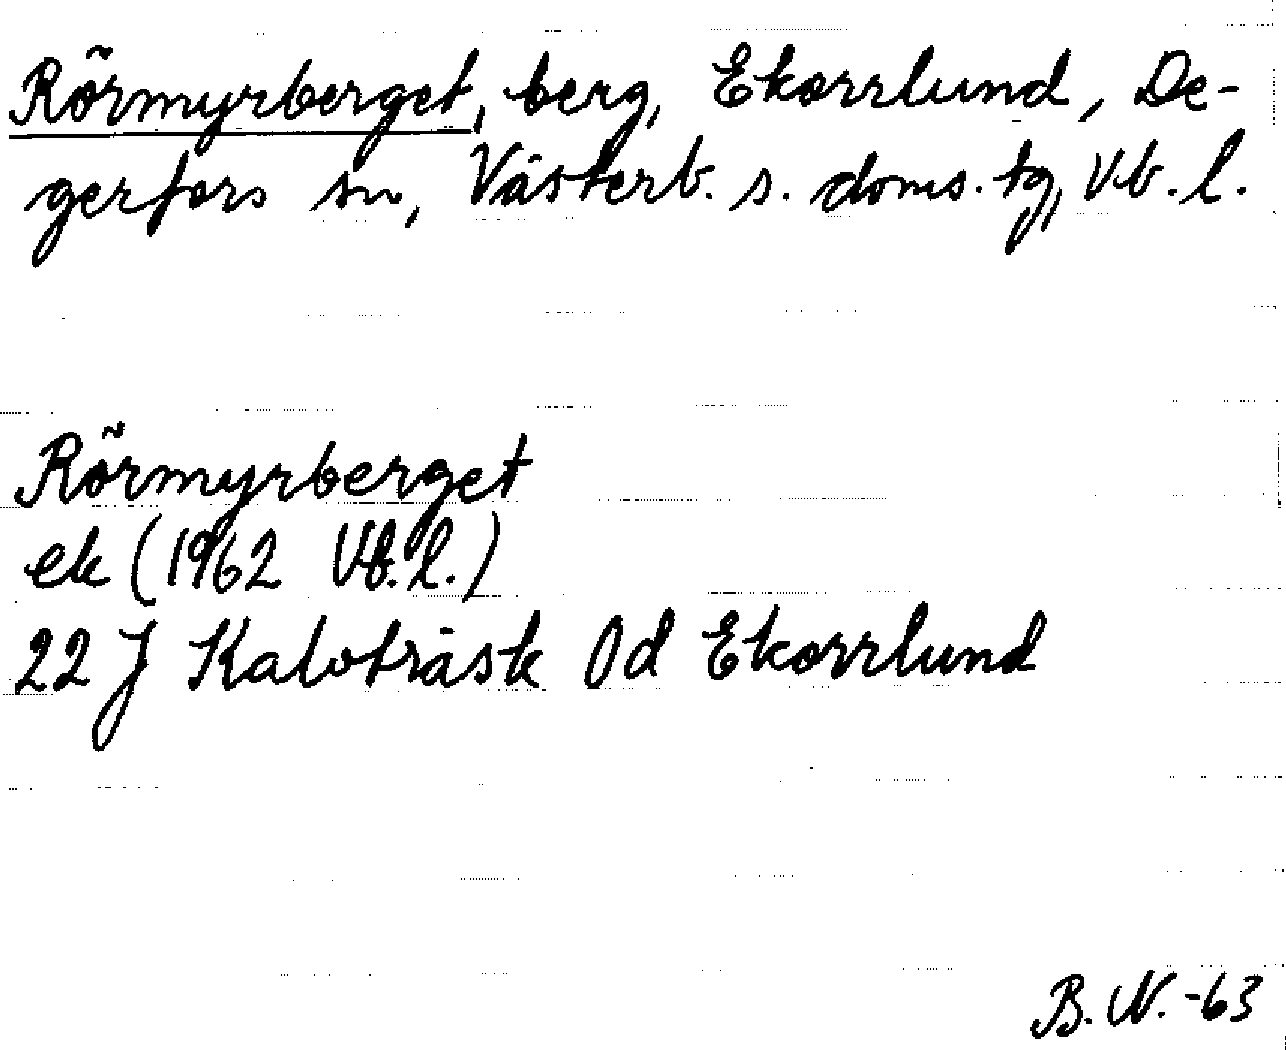 Rörmyrberget, berg, Ekorrlund, De-
gerfors sn, Västerb. s. doms. tg, Vb. l.
Rörmyrberget
ek (1962 Vb. l.)
22 J Kalvträsk 0d Ekorrlund
B. N. -63